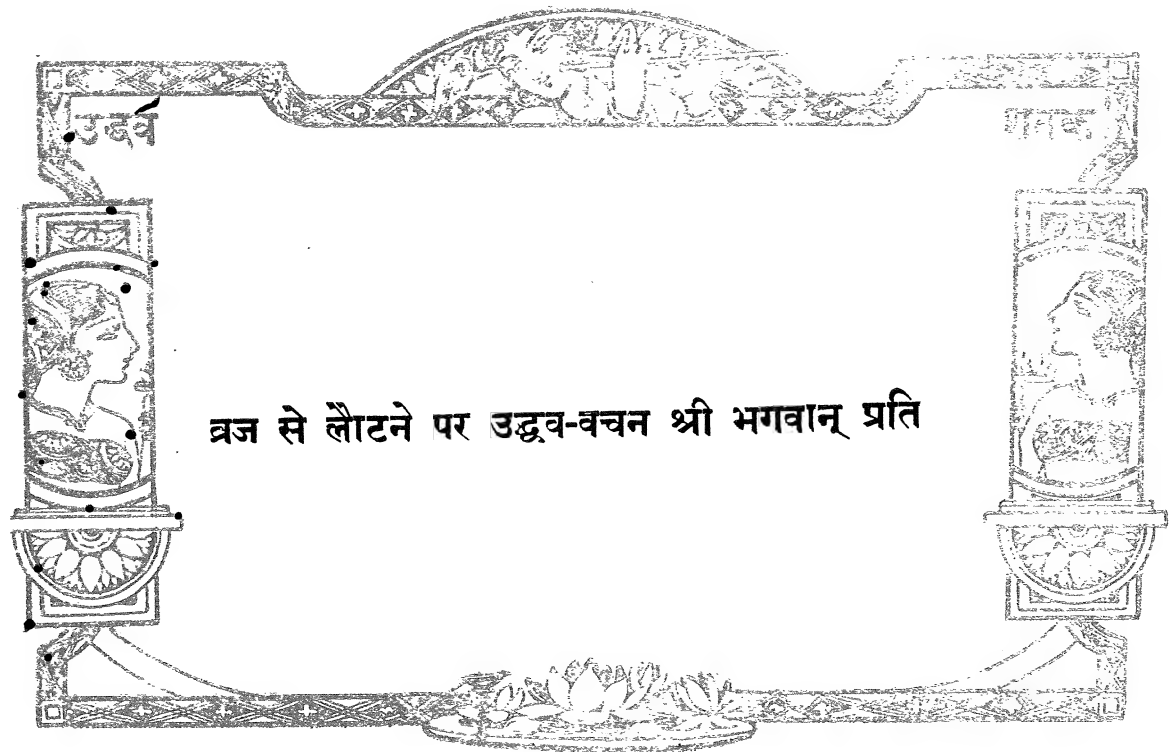 उद्धव
शतक
व्रज से लौटने पर उद्धव-वचन श्री भगवान् प्रति